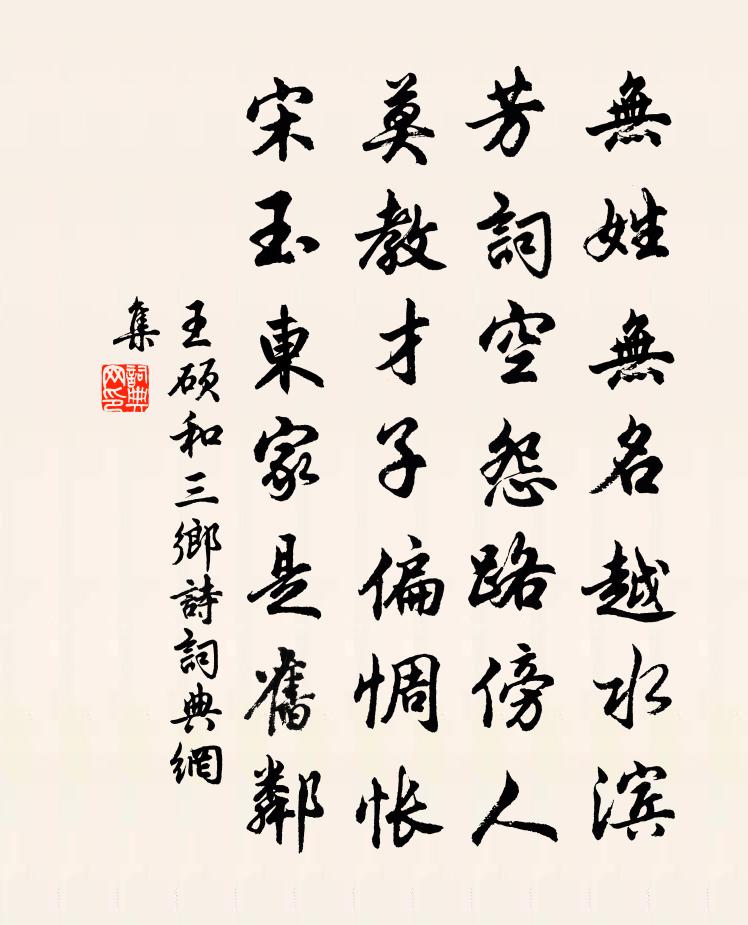 無姓無名越水滨
芳詞空怨路傍人
莫教才子偏惆怅
宋玉東家是舊鄰
王碩和三鄉詩詞典網
集
詞典网印